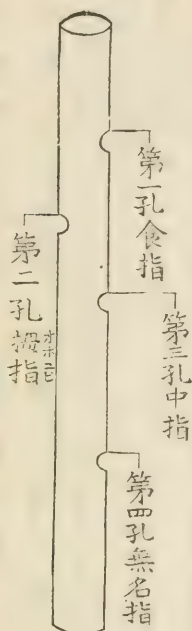 第一孔食指
第二孔拇指オホユビ
第三孔中指
第四孔無名指